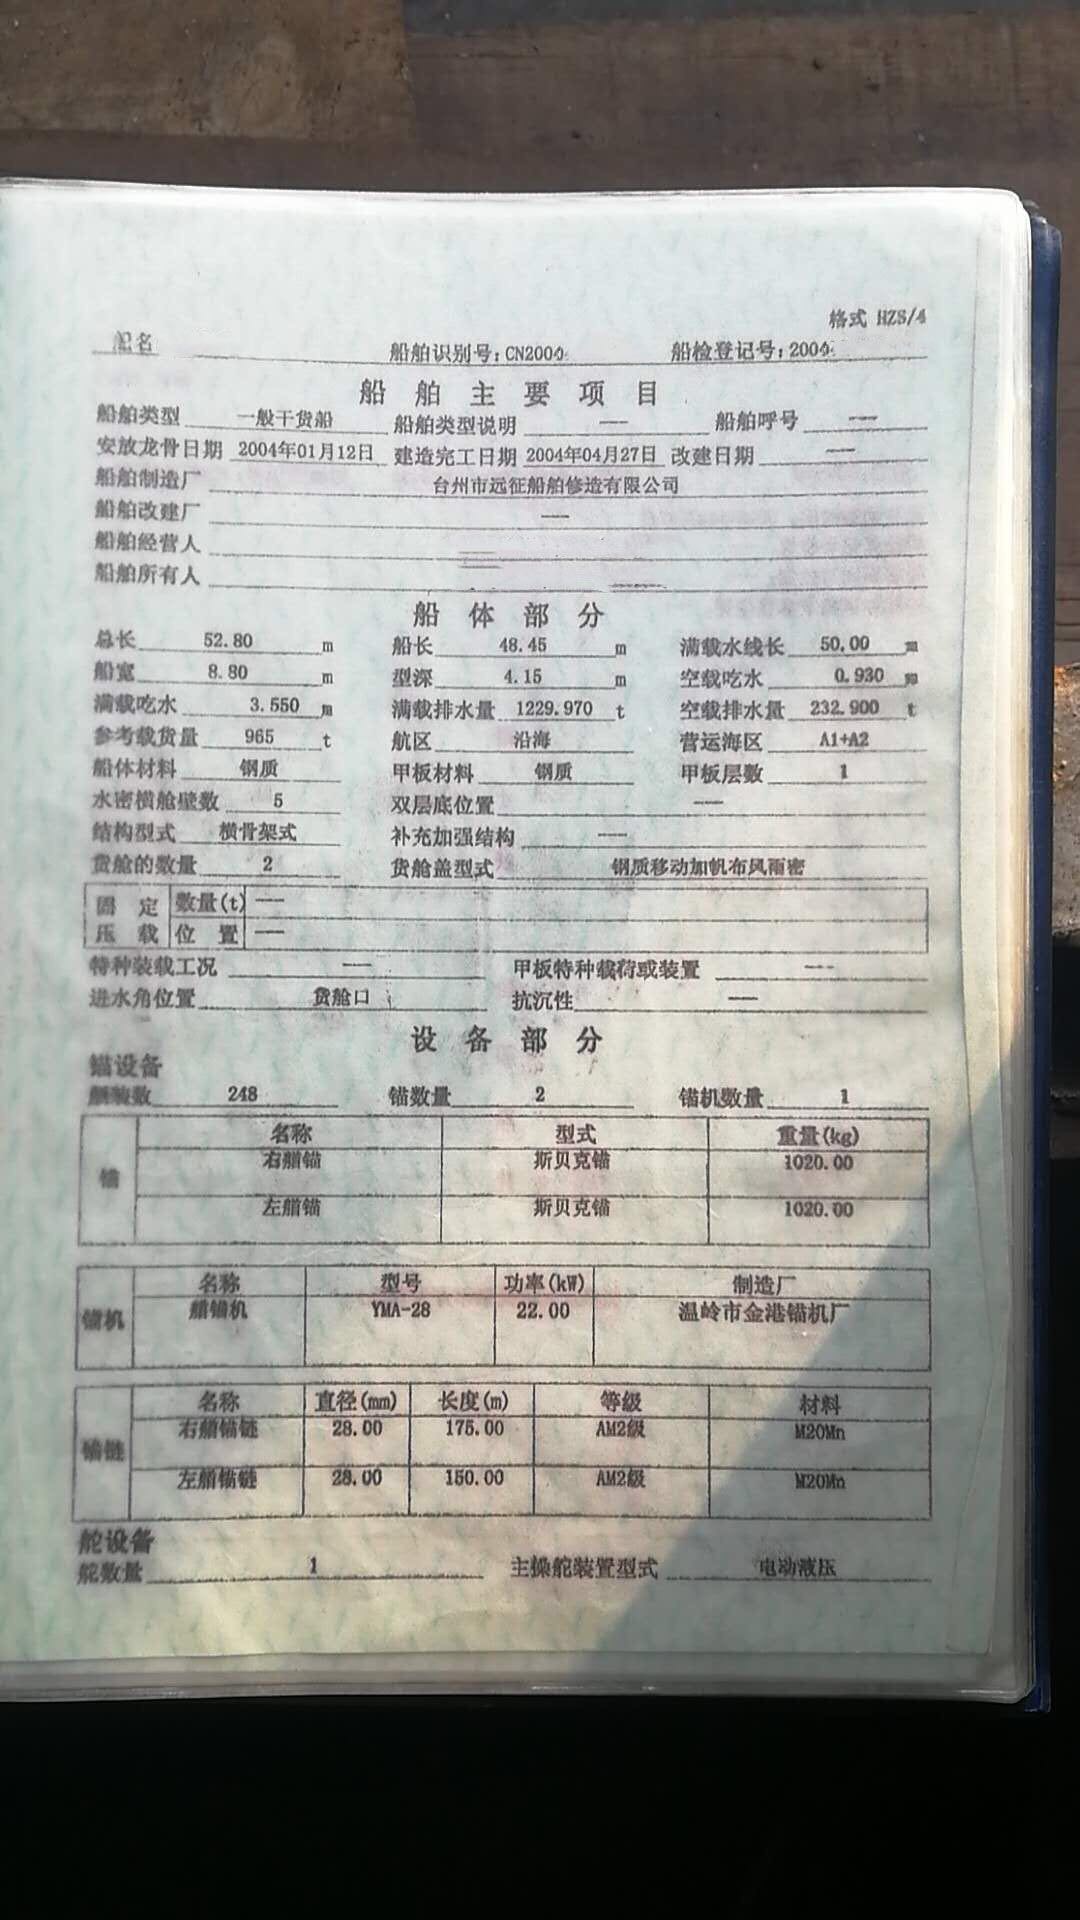 格式 HZS/4
船名 船舶识别号:CN2004 船检登记号:2004
船舶主要项目
船舶类型 一般干货船 船舶类型说明 — 船舶呼号 —
安放龙骨日期 2004年01月12日 建造完工日期 2004年04月27日 改建日期 —
船舶制造厂 台州市远征船舶修造有限公司
船舶改建厂 —
船舶经营人
船舶所有人
船体部分
总长 52.80 m 船长 48.45 m 满载水线长 50.00 m
船宽 8.80 m 型深 4.15 m 空载吃水 0.930 m
满载吃水 3.550 m 满载排水量 1229.970 t 空载排水量 232.900 t
参考载货量 965 t 航区 沿海 营运海区 A1+A2
船体材料 钢质 甲板材料 钢质 甲板层数 1
水密横舱壁数 5 双层底位置 —
结构型式 横骨架式 补充加强结构 —
货舱的数量 2 货舱盖型式 钢质移动加帆布风雨密
固定 数量(t) —
压载 位置 —
特种装载工况 — 甲板特种载荷或装置 —
进水角位置 货舱口 抗沉性 —
设备部分
锚设备
舾装数 248 锚数量 2 锚机数量 1
名称 型式 重量(kg)
锚 右艏锚 斯贝克锚 1020.00
左艏锚 斯贝克锚 1020.00
名称 型号 功率(kW) 制造厂
锚机 艏锚机 YMA-28 22.00 温岭市金港锚机厂
名称 直径(mm) 长度(m) 等级 材料
锚链 右艏锚链 28.00 175.00 AM2级 M20Mn
左艏锚链 28.00 150.00 AM2级 M20Mn
舵设备
舵数量 1 主操舵装置型式 电动液压